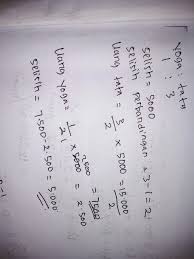 yoga : tata
1 : 3
selisih = 5000
selisih perbandingan = 3-1 = 2
Uang tata = 3/2 x 5000 = 15.000/2
= 7500
Uang yoga = 1/2 x 5000 = 2.500
selisih = 7.500 - 2.500 = 5.000